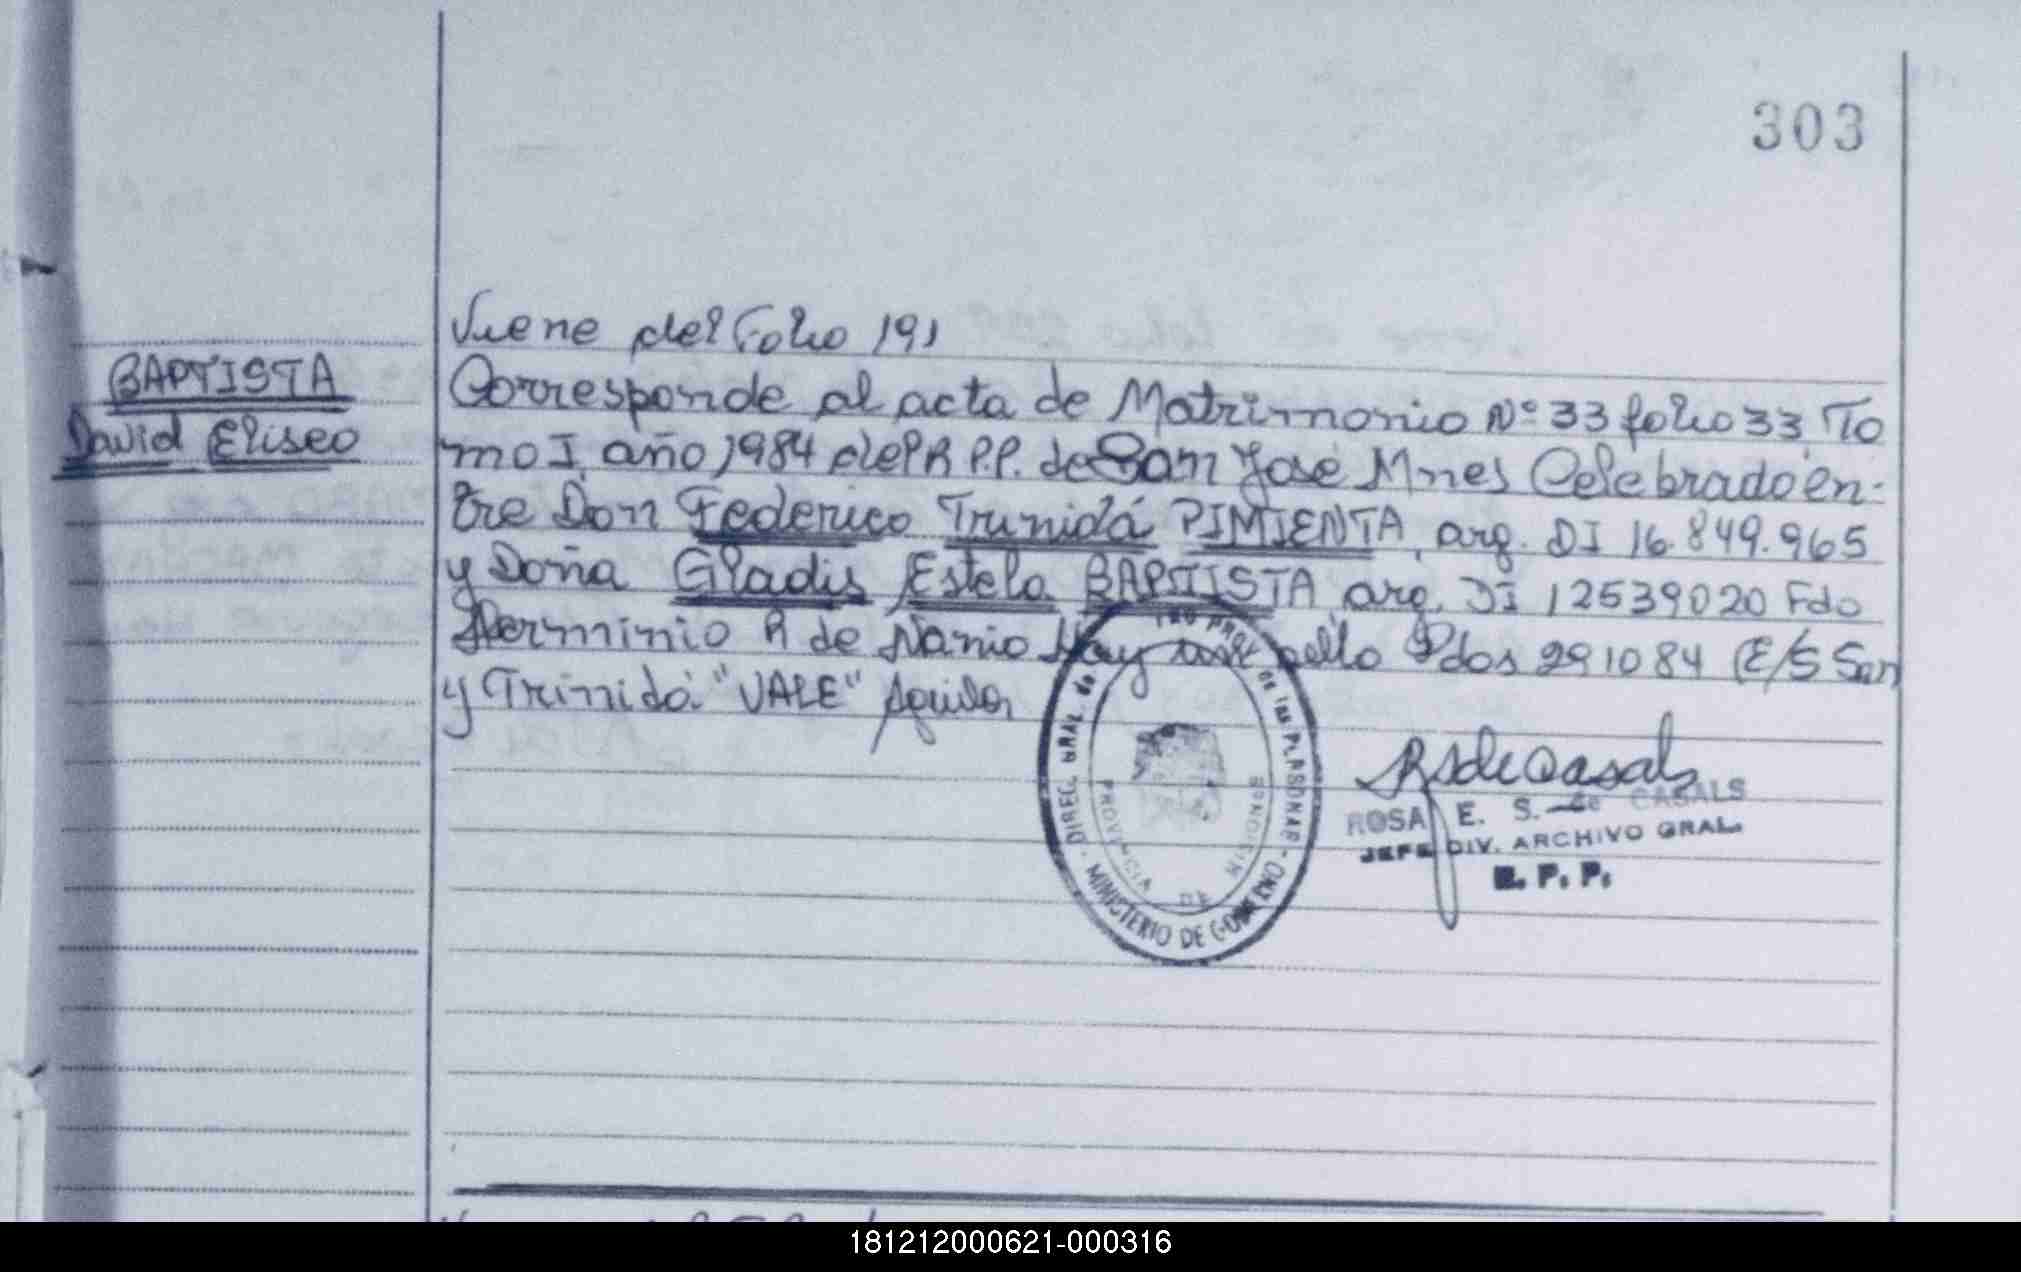 303
Viene del Folio 191
BAPTISTA
David Eliseo
Corresponde al acta de Matrimonio Nº 33 folio 33 To
mo I año 1984 del R P.P. de San José Mnes Celebrado en-
tre Don Federico Trinidá PIMIENTA, arg. DI 16.849.965
y Doña Gladis Estela BAPTISTA arg. DI 12539020 Fdo
Herminio R de Nanio Hay sello Pdos 291084 (E/S San
y Trinidá "VALE" Aguilar
DIREC. GRAL. de PROV. de las PERSONAS - MINISTERIO DE GOBIERNO
PROVINCIA DE MISIONES
RSdeCasals
ROSA E. S. de CASALS
JEFE DIV. ARCHIVO GRAL.
R. P. P.
181212000621-000316